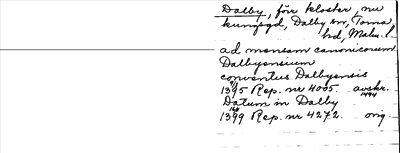 Dalby, förr kloster, nu
kungsgd, Dalby sn, Torna
hd, Malm. l.
ad mensam canonicorum
Dalbyensium
conventus Dalbyensis
1395 Rep. nr 4005. avskr.
1494
Datum in Dalby
1399 Rep. nr 4272. orig.